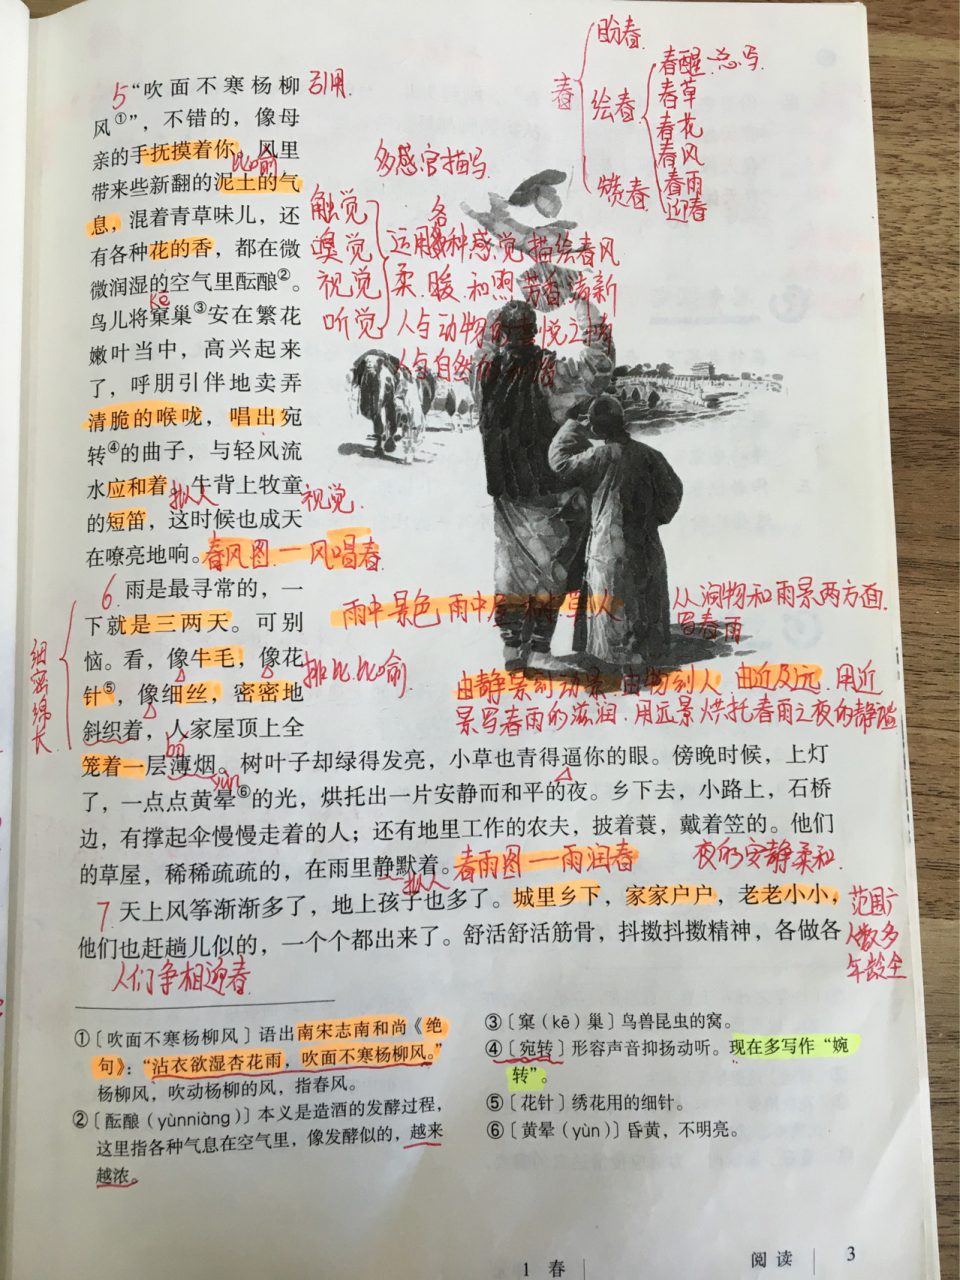 盼春
春
绘春
春醒 总写
春草
春花
春风
春雨
迎春
赞春
5
“吹面不寒杨柳
引用
风①”，不错的，像母
亲的手抚摸着你，风里
比喻
带来些新翻的泥土的气
息，混着青草味儿，还
有各种花的香，都在微
微润湿的空气里酝酿②。
kē
鸟儿将窠巢③安在繁花
嫩叶当中，高兴起来
了，呼朋引伴地卖弄
清脆的喉咙，唱出宛
转④的曲子，与轻风流
水应和着。牛背上牧童
拟人
视觉
的短笛，这时候也成天
在嘹亮地响。
春风图一风唱春
多感官描写
触觉
嗅觉
视觉
听觉
各
运用种感觉描绘春风
柔.暖.和煦.芳香.清新
人与动物的喜悦之情
人与自然的
6.
雨是最寻常的，一
下就是三两天。可别
恼。看，像牛毛，像花
针⑤，像细丝，密密地
排比.比喻
斜织着，人家屋顶上全
细密绵长
bó
笼着一层薄烟。树叶子却绿得发亮，小草也青得逼你的眼。傍晚时候，上灯
yùn
了，一点点黄晕⑥的光，烘托出一片安静而和平的夜。乡下去，小路上，石桥
边，有撑起伞慢慢走着的人；还有地里工作的农夫，披着蓑，戴着笠的。他们
的草屋，稀稀疏疏的，在雨里静默着。
春雨图一雨润春
夜的安静柔和
拟人
雨中景色 雨中
从润物和雨景两方面
写春雨
由静景到动景.由物到人 由近及远.用近
景写春雨的滋润.用远景烘托春雨之夜的静谧
7.
天上风筝渐渐多了，地上孩子也多了。城里乡下，家家户户，老老小小，
他们也赶趟儿似的，一个个都出来了。舒活舒活筋骨，抖擞抖擞精神，各做各
范围广
人数多
年龄全
人们争相迎春
①〔吹面不寒杨柳风〕语出南宋志南和尚《绝
句》：“沾衣欲湿杏花雨，吹面不寒杨柳风。”
杨柳风，吹动杨柳的风，指春风。
②〔酝酿（yùnniàng）〕本义是造酒的发酵过程，
这里指各种气息在空气里，像发酵似的，越来
越浓。
③〔窠（kē）巢〕鸟兽昆虫的窝。
④〔宛转〕形容声音抑扬动听。现在多写作“婉
转”。
⑤〔花针〕绣花用的细针。
⑥〔黄晕（yùn）〕昏黄，不明亮。
1 春
阅读
3